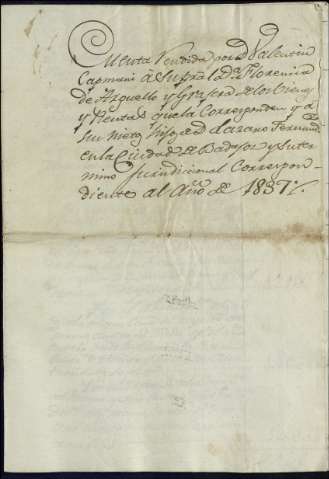 Cuenta Rendida por Dn Valentin
Capmani á su Pral la Da Florencia
de Arguello y Grajera de los Vienes
y Rentas que la Corresponden y a
su hijo Dn Lazaro Fernand
en la Ciudad de Badajoz y su ter
mino Jurisdicional Correspon-
diente al Año de 1837